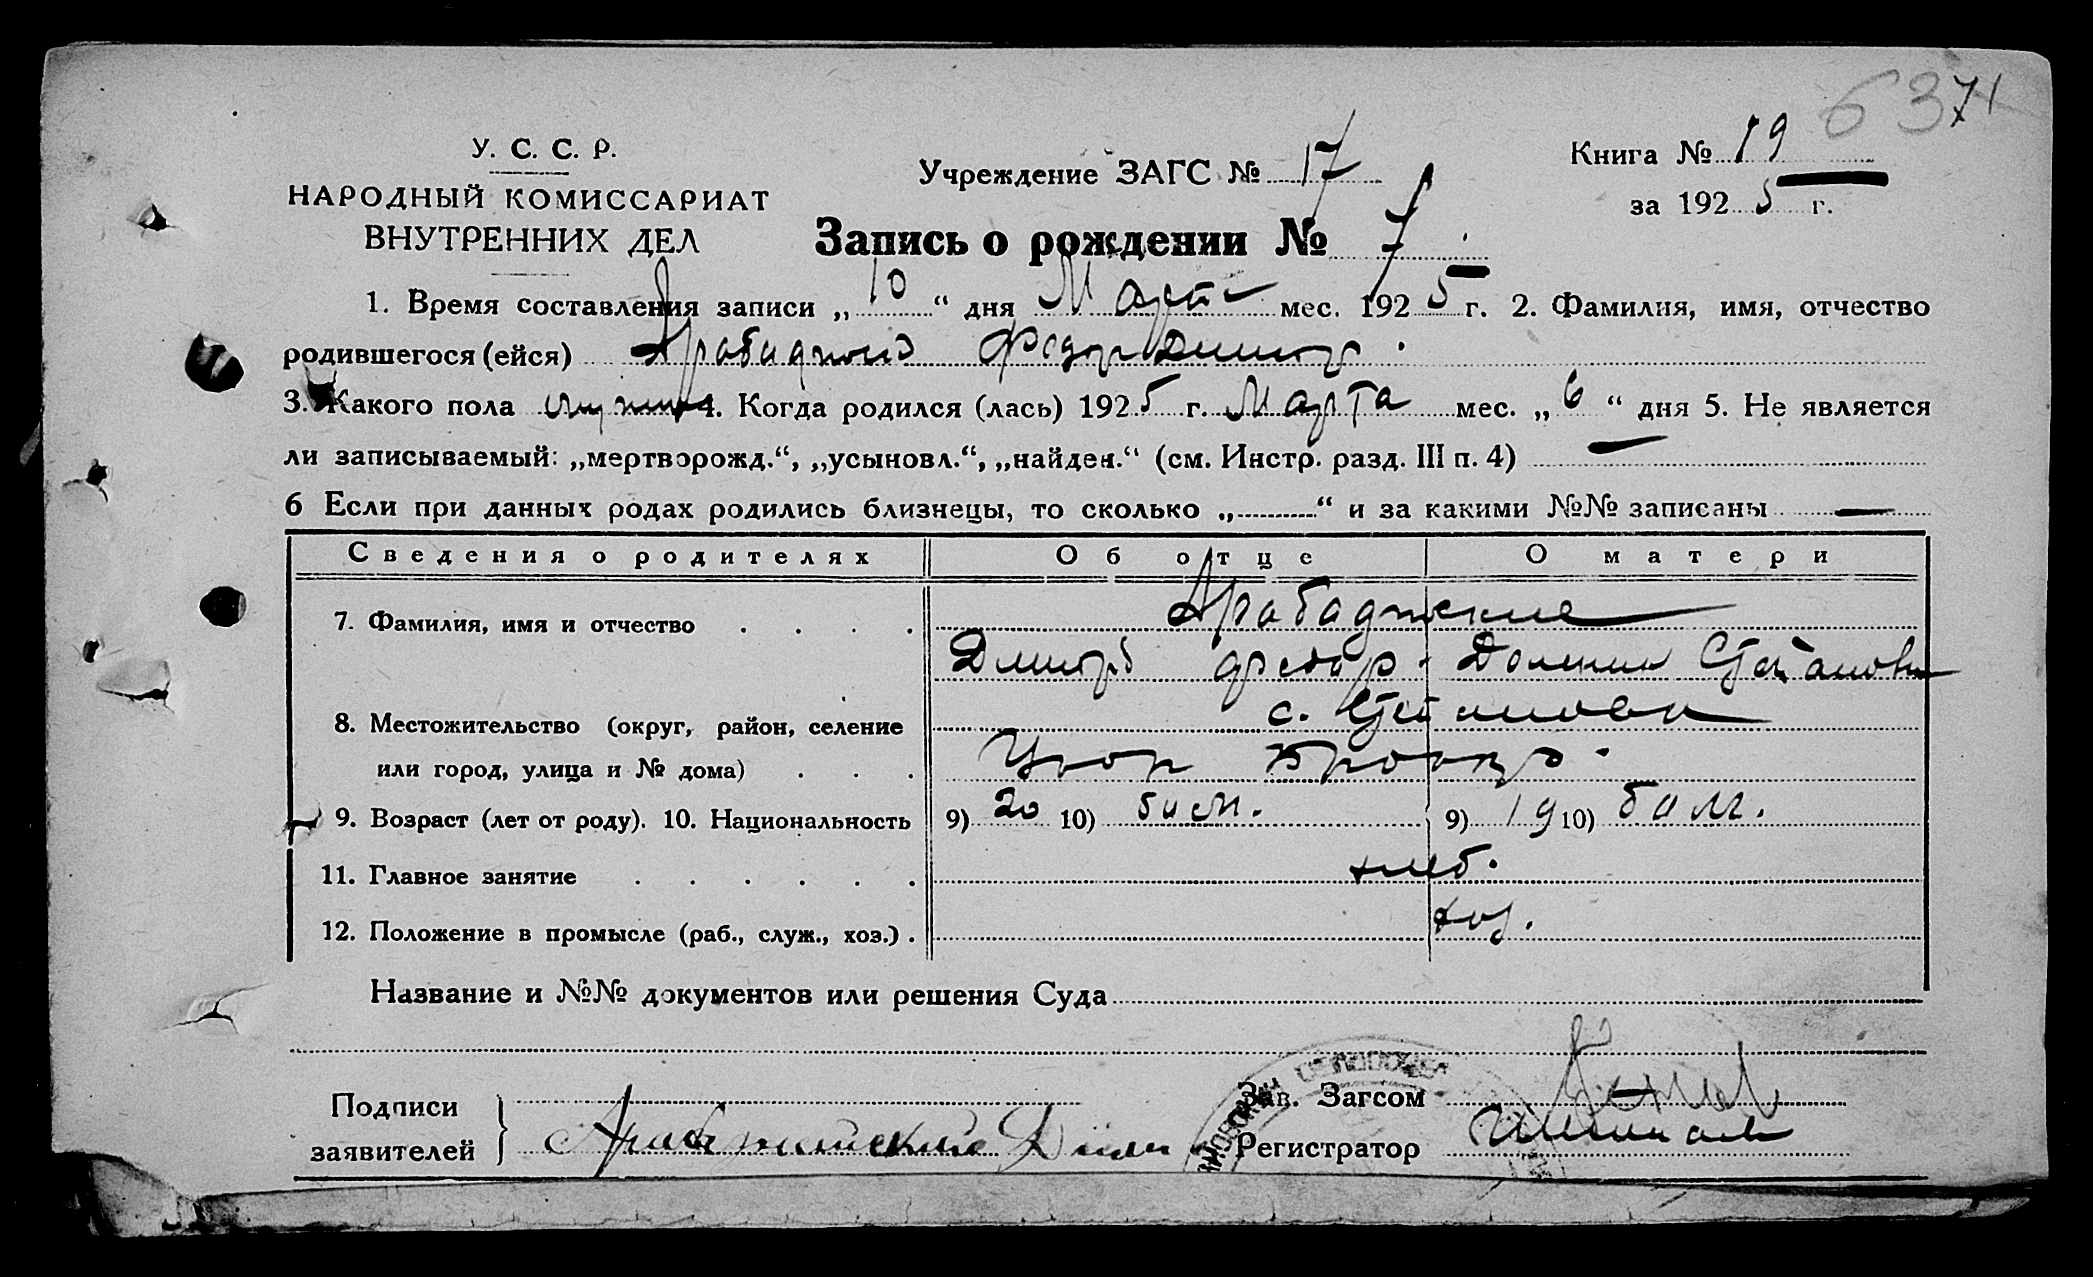 6371
У. С. С. Р.
НАРОДНЫЙ КОМИССАРИАТ
ВНУТРЕННИХ ДЕЛ
Учреждение ЗАГС № 17
Книга № 19
за 1925 г.
Запись о рождении № 7
1. Время составления записи „10“ дня Марта мес. 1925 г. 2. Фамилия, имя, отчество
родившегося (ейся) Федор Дмитр.
3. Какого пола мужск 4. Когда родился (лась) 1925 г. Марта мес. „6“ дня 5. Не является
ли записываемый: „мертворожд.“, „усыновл.“, „найден.“ (см. Инстр. разд. III п. 4) —
6 Если при данных родах родились близнецы, то сколько „..........“ и за какими №№ записаны —
Сведения о родителях Об отце О матери
7. Фамилия, имя и отчество . . . . Арабаджские
Дмитр Федор. Степанов
8. Местожительство (округ, район, селение с. Степановка
или город, улица и № дома) . . .
9. Возраст (лет от роду). 10. Национальность 9) 20 10) 9) 19 10)
11. Главное занятие . . . . . . хлеб.
12. Положение в промысле (раб., служ., хоз.) . хоз.
Название и №№ документов или решения Суда
Подписи
заявителей
Зав. Загсом
Регистратор